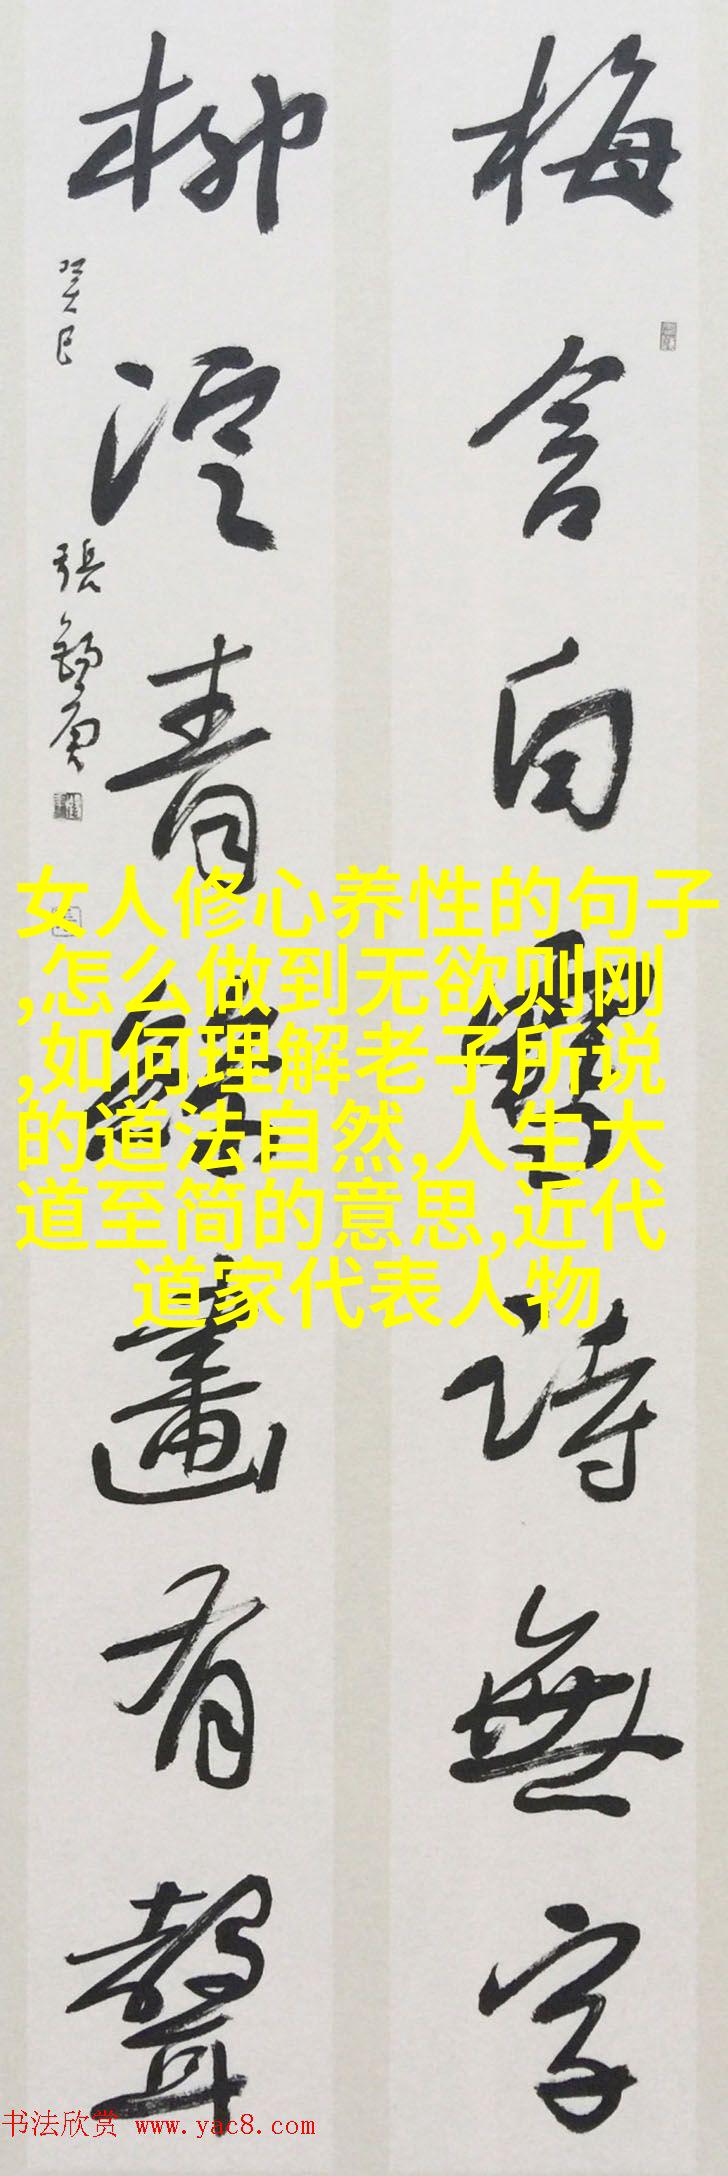 梅含白雪詩無字
柳浥青煙畫有聲
癸巳
張錫庚
女人修心养性的句子
,怎么做到无欲则刚
,如何理解老子所说
的道法自然,人生大
道至简的意思,近代
道家代表人物
书法欣赏 www.yac8.com